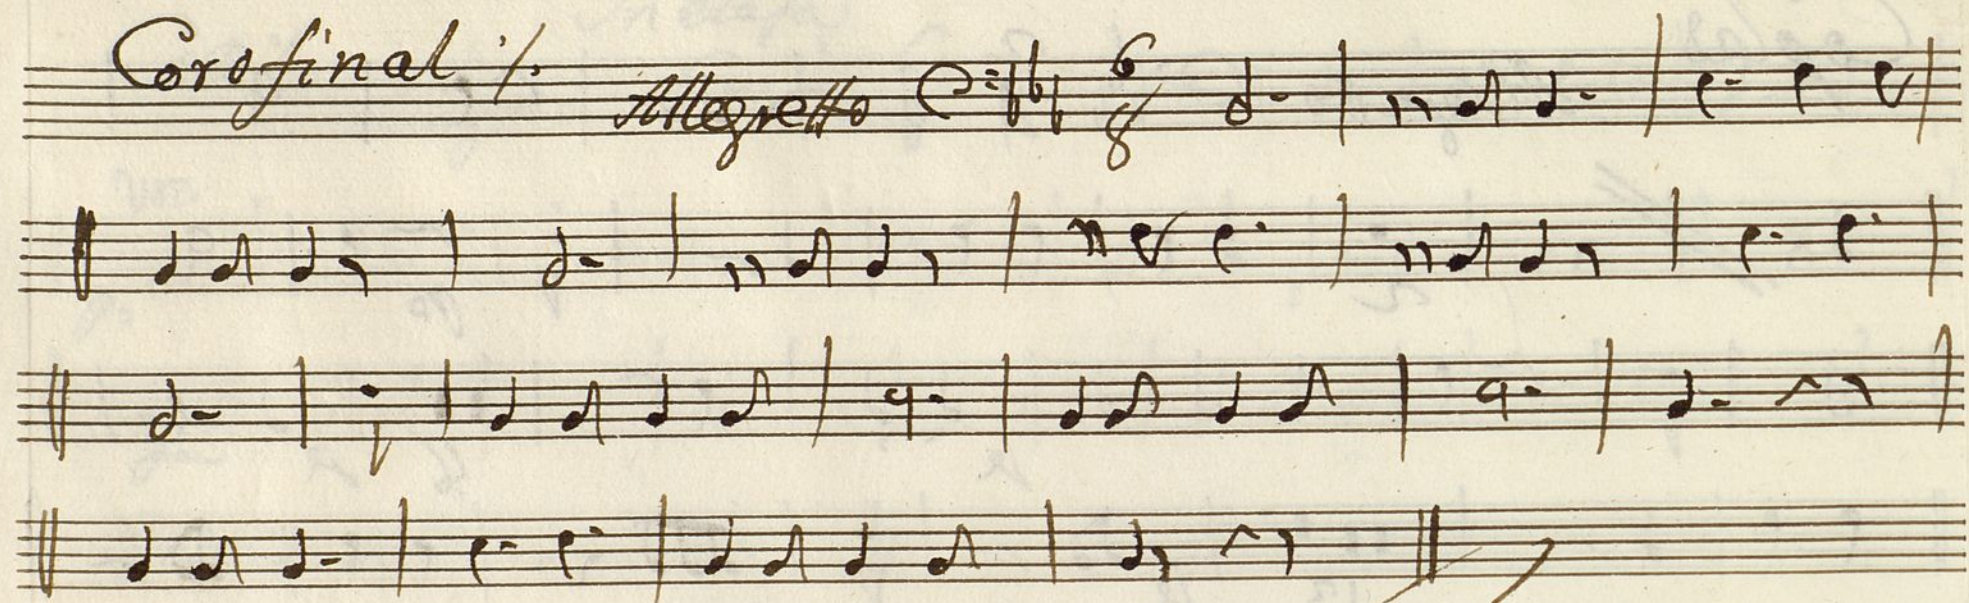 Coro final ·/.
Allegretto 6
8